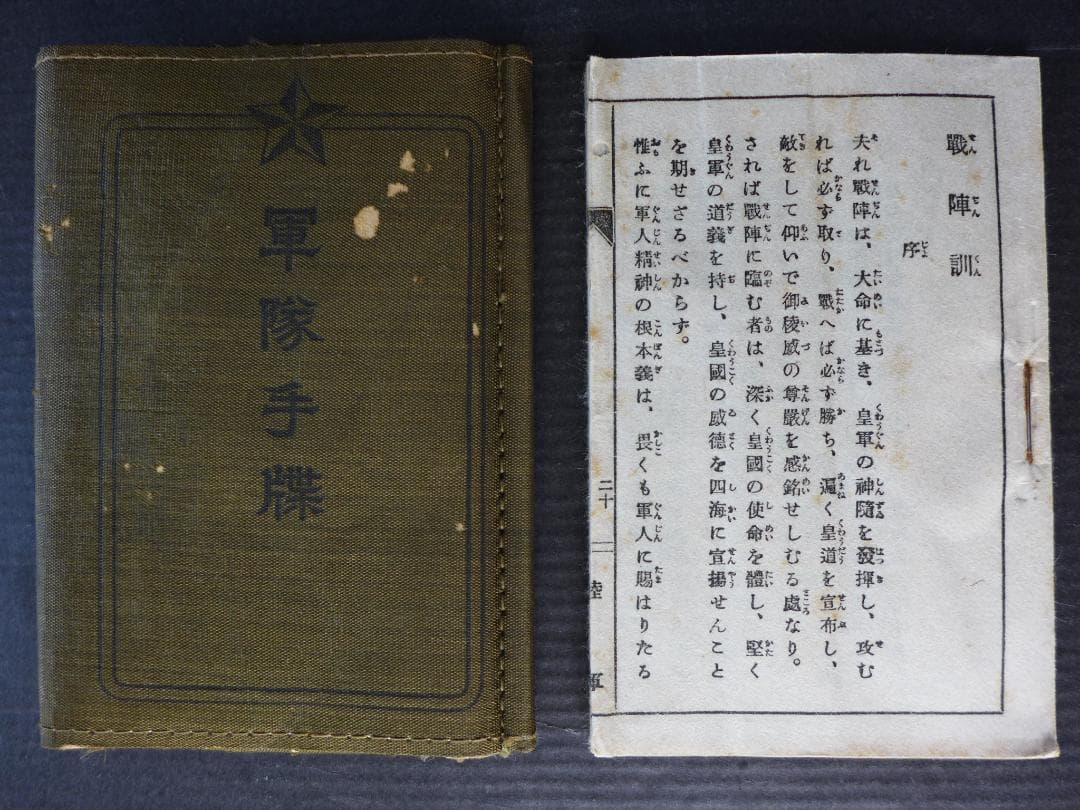 軍隊手牒
戰陣訓
序
夫れ戰陣は、大命に基き、皇軍の神髓を發揮し、攻む
れば必ず取り、戰へば必ず勝ち、遍く皇道を宣布し、
敵をして仰いで御稜威の尊嚴を感銘せしむる處なり。
されば戰陣に臨む者は、深く皇國の使命を體し、堅く
皇軍の道義を持し、皇國の威德を四海に宣揚せんこと
を期せざるべからず。
惟ふに軍人精神の根本義は、畏くも軍人に賜はりたる
二十
陸軍